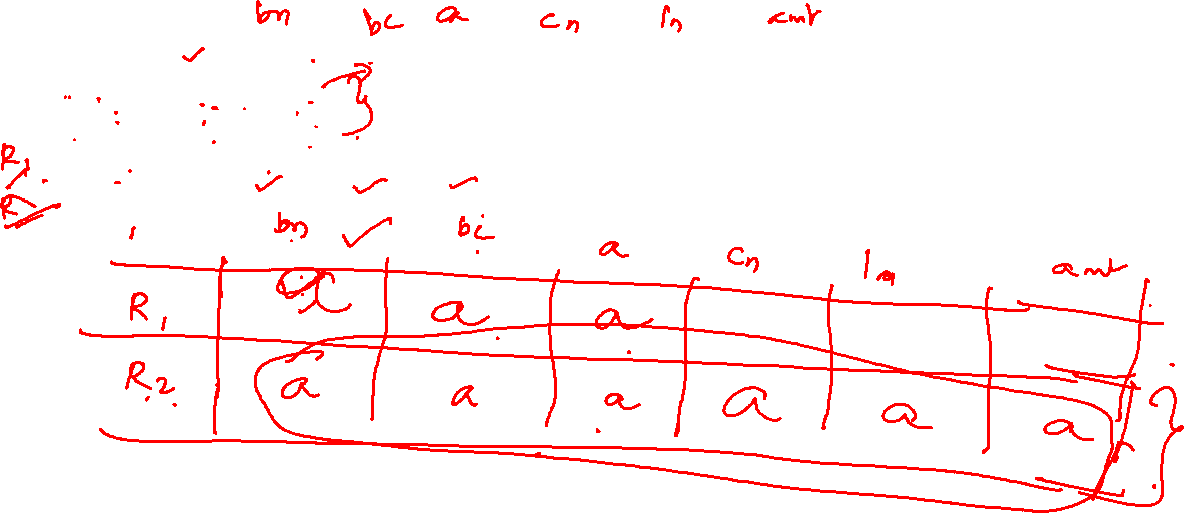 bn bc a cn ln amt
R1
bn bc a cn ln amt
R1 a a
R2 a a a a a a